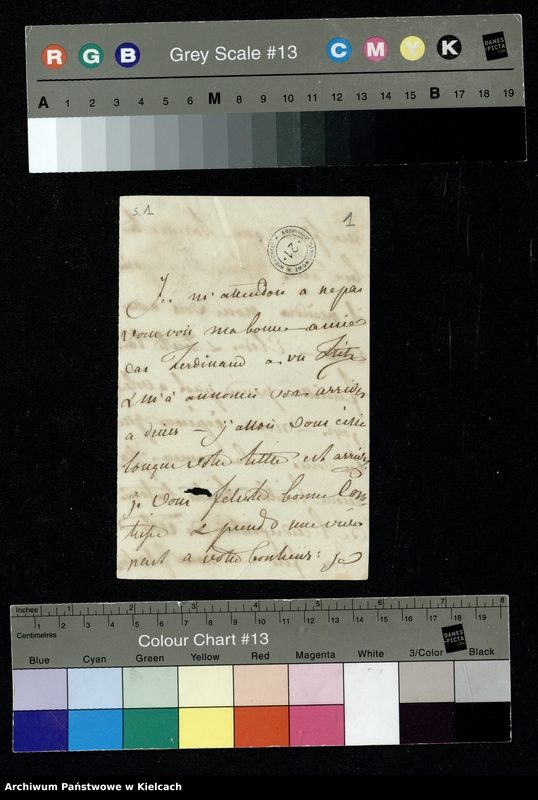 R G B Grey Scale #13 C M Y K DANES-PICTA
A 1 2 3 4 5 6 M 8 9 10 11 12 13 14 15 B 17 18 19
s. 1
1
21
Je m'attendois a ne pas
vous voir ma bonne amie
car Ferdinand a vu Fritz
& m'a annoncé son arrivée
a diner – j'allois vous écrire
lorsque votre lettre est arrivée
je vous félicite bonne Com
tesse & prends une vraie
part a votre bonheur: je
Inches 1 2 3 4 5 6 7 8
Centimetres 1 2 3 4 5 6 7 8 9 10 11 12 13 14 15 16 17 18 19
Colour Chart #13 DANES-PICTA
Blue Cyan Green Yellow Red Magenta White 3/Color Black
Archiwum Państwowe w Kielcach